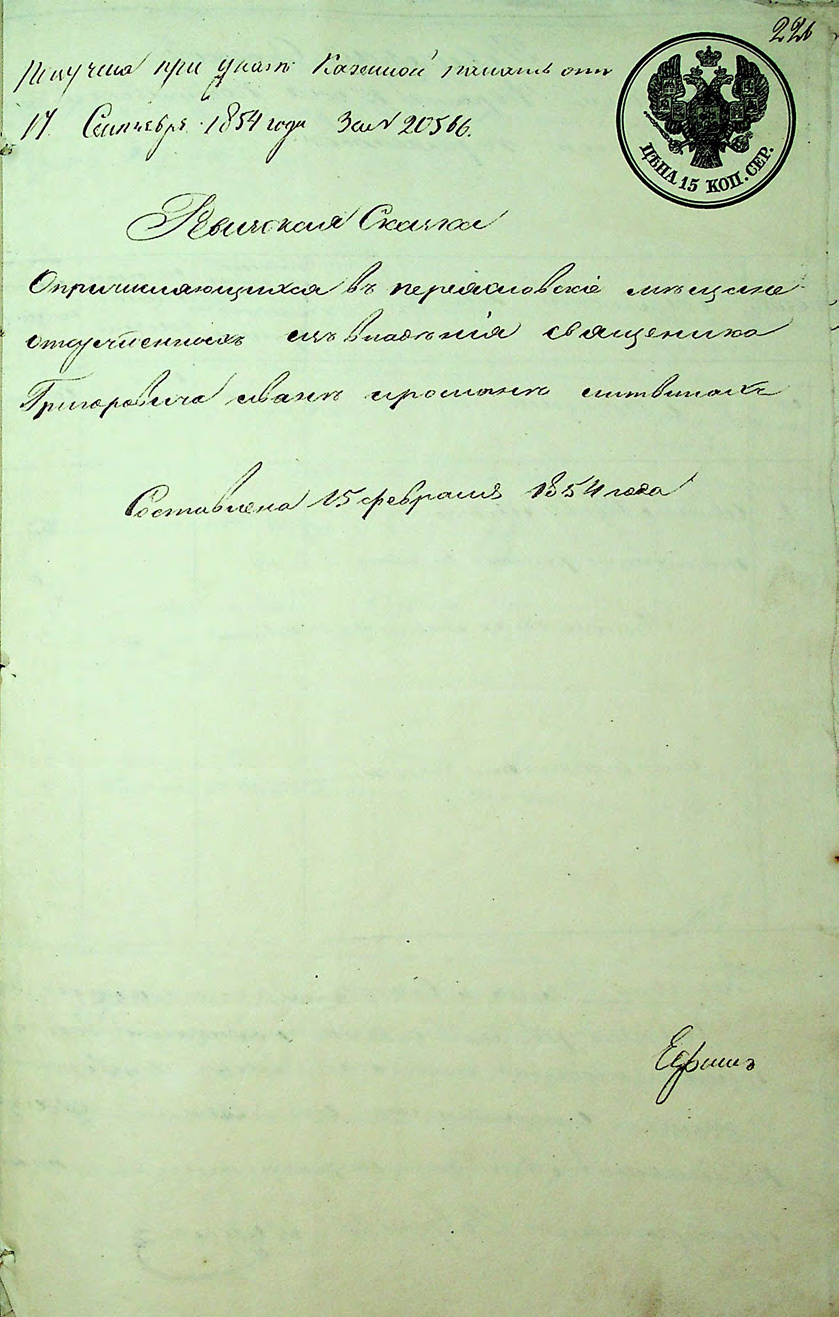 226
Получена при указе Казенной палаты отъ
17 Сентября 1854 года За № 20566.
ЦѢНА 15 КОП. СЕР.
Ревизская Сказка
О причисляющихся въ переясловскіе мещане
отпущенныхъ изъ владѣнія священика
Григоровича иванъ ироманъ литвинахъ
Составлена 15 февраля 1854 года